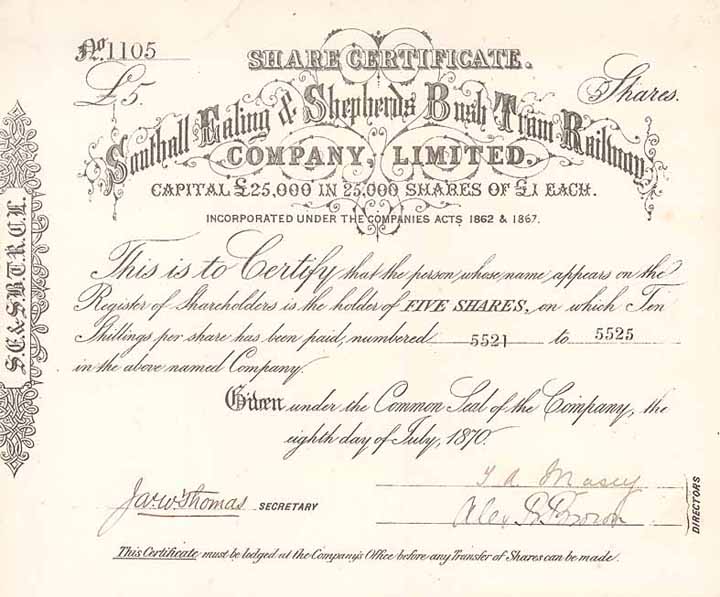 No. 1105
SHARE CERTIFICATE.
£5.
5 Shares.
Southall Ealing & Shepherds Bush Tram-Railway
COMPANY, LIMITED.
CAPITAL £25,000 IN 25,000 SHARES OF £1 EACH.
INCORPORATED UNDER THE COMPANIES ACTS 1862 & 1867.
S.E. & S.B.T.R.C.L.
This is to Certify that the person, whose name, appears on the
Register of Shareholders is the holder of FIVE SHARES, on which Ten
Shillings per share has been paid, numbered 5521 to 5525
in the above named Company.
Given under the Common Seal of the Company, the
eighth day of July, 1870.
Jas. W. Thomas SECRETARY
Alex R. Brown
DIRECTORS
This Certificate must be lodged at the Company's Office before any Transfer of Shares can be made.